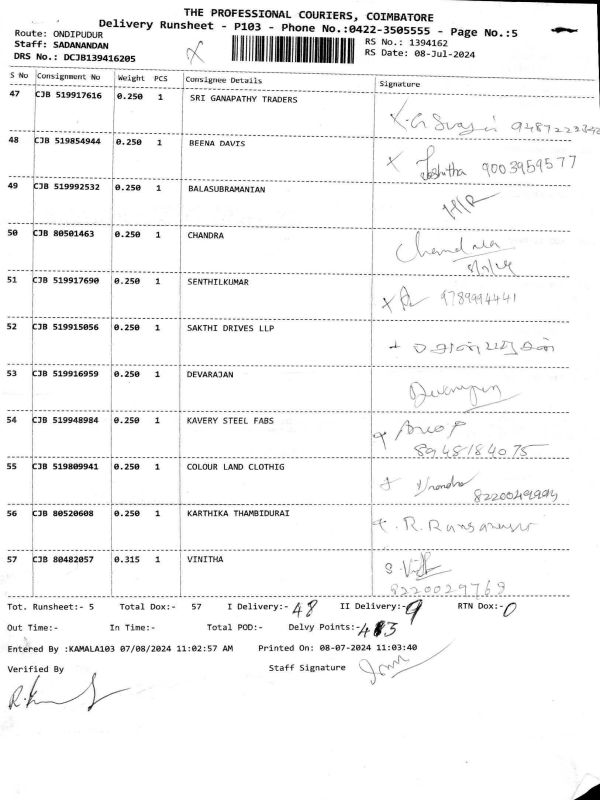 THE PROFESSIONAL COURIERS, COIMBATORE
Delivery Runsheet - P103 - Phone No.:0422-3505555 - Page No.:5
Route: ONDIPUDUR RS No.: 1394162
Staff: SADANANDAN RS Date: 08-Jul-2024
DRS No.: DCJB139416205
S No Consignment No Weight PCS Consignee Details Signature
47 CJB 519917616 0.250 1 SRI GANAPATHY TRADERS
48 CJB 519854944 0.250 1 BEENA DAVIS 9003959577
49 CJB 519992532 0.250 1 BALASUBRAMANIAN
50 CJB 80501463 0.250 1 CHANDRA Chandra
51 CJB 519917690 0.250 1 SENTHILKUMAR 9789994441
52 CJB 519915056 0.250 1 SAKTHI DRIVES LLP
53 CJB 519916959 0.250 1 DEVARAJAN
54 CJB 519948984 0.250 1 KAVERY STEEL FABS
8948184075
55 CJB 519809941 0.250 1 COLOUR LAND CLOTHIG
56 CJB 80520608 0.250 1 KARTHIKA THAMBIDURAI
57 CJB 80482057 0.315 1 VINITHA
8220029768
Tot. Runsheet:- 5 Total Dox:- 57 I Delivery:- 48 II Delivery:- 9 RTN Dox:- 0
Out Time:- In Time:- Total POD:- Delvy Points:-
Entered By :KAMALA103 07/08/2024 11:02:57 AM Printed On: 08-07-2024 11:03:40
Verified By Staff Signature